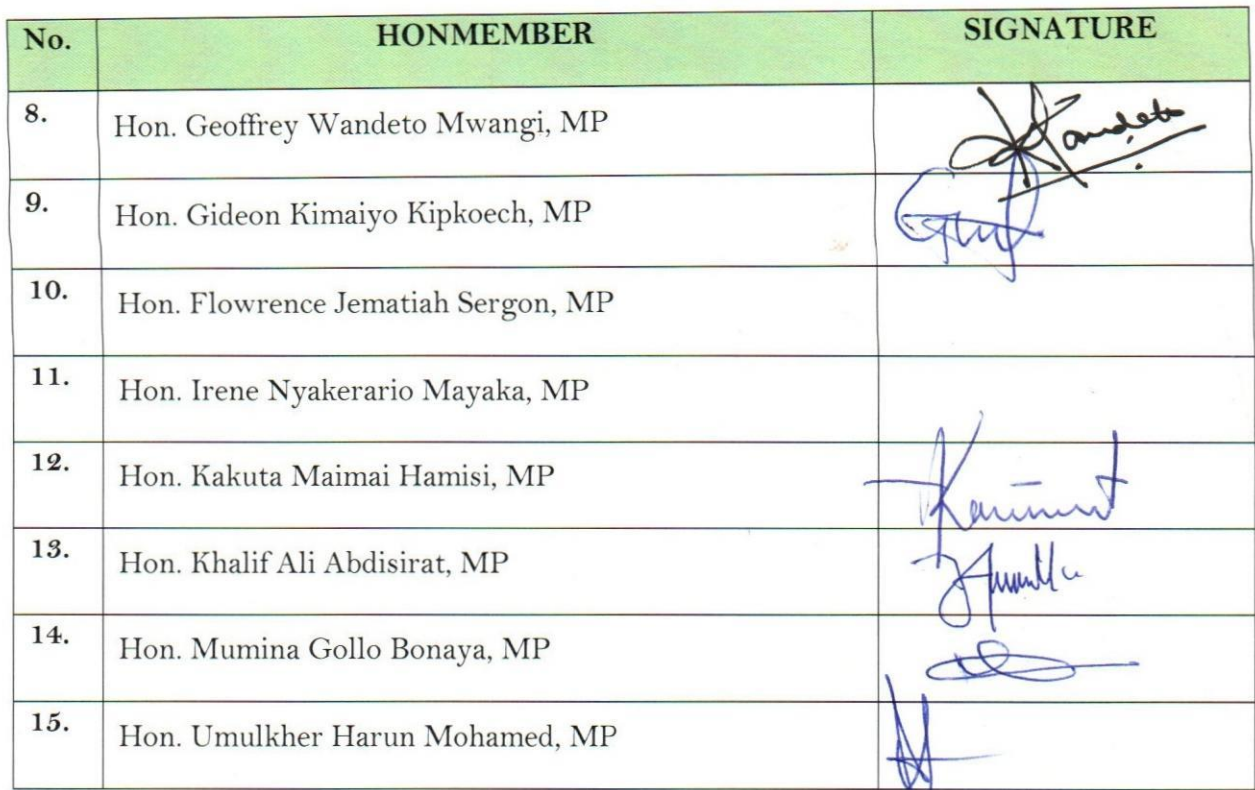 No. HONMEMBER SIGNATURE
8. Hon. Geoffrey Wandeto Mwangi, MP Wandeto
9. Hon. Gideon Kimaiyo Kipkoech, MP
10. Hon. Flowrence Jematiah Sergon, MP
11. Hon. Irene Nyakerario Mayaka, MP
12. Hon. Kakuta Maimai Hamisi, MP
13. Hon. Khalif Ali Abdisirat, MP
14. Hon. Mumina Gollo Bonaya, MP
15. Hon. Umulkher Harun Mohamed, MP